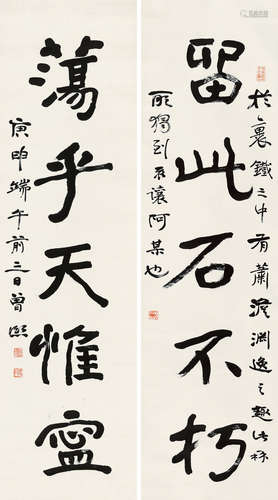 於裹鐵之中有蕭澹淵逸之趣此
留此石不朽
所獨到不讓阿某也
蕩乎天惟寧
庚申端午前三日曾熙